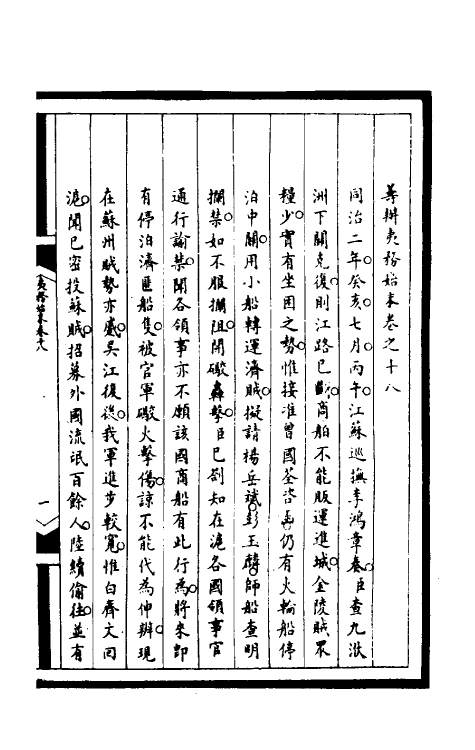 籌辦夷務始末卷之十八
同治二年癸亥七月丙午江蘇巡撫李鴻章奏臣查九洑
洲下關克復則江路已斷商船不能販運進城金陵賊眾
糧少實有坐困之勢惟接准曾國荃咨函仍有火輪船停
泊中關用小船轉運濟賊擬請楊岳斌彭玉麟師船查明
攔禁如不服攔阻開礮轟擊臣已劄知在滬各國領事官
通行諭禁聞各領事亦不願該國商船有此行為將來即
有停泊濟匪船隻被官軍礮火擊傷諒不能代為伸辦現
在蘇州賊勢亦蹙吳江復後我軍進步較寬惟白齊文回
滬聞已密投蘇賊招募外國流氓百餘人陸續偷往並有
夷務始末卷十八
一